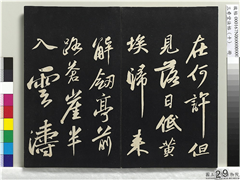 在何許但
見落日低黄
埃歸来
解劒亭前
路蒼崖半
入雲濤
29